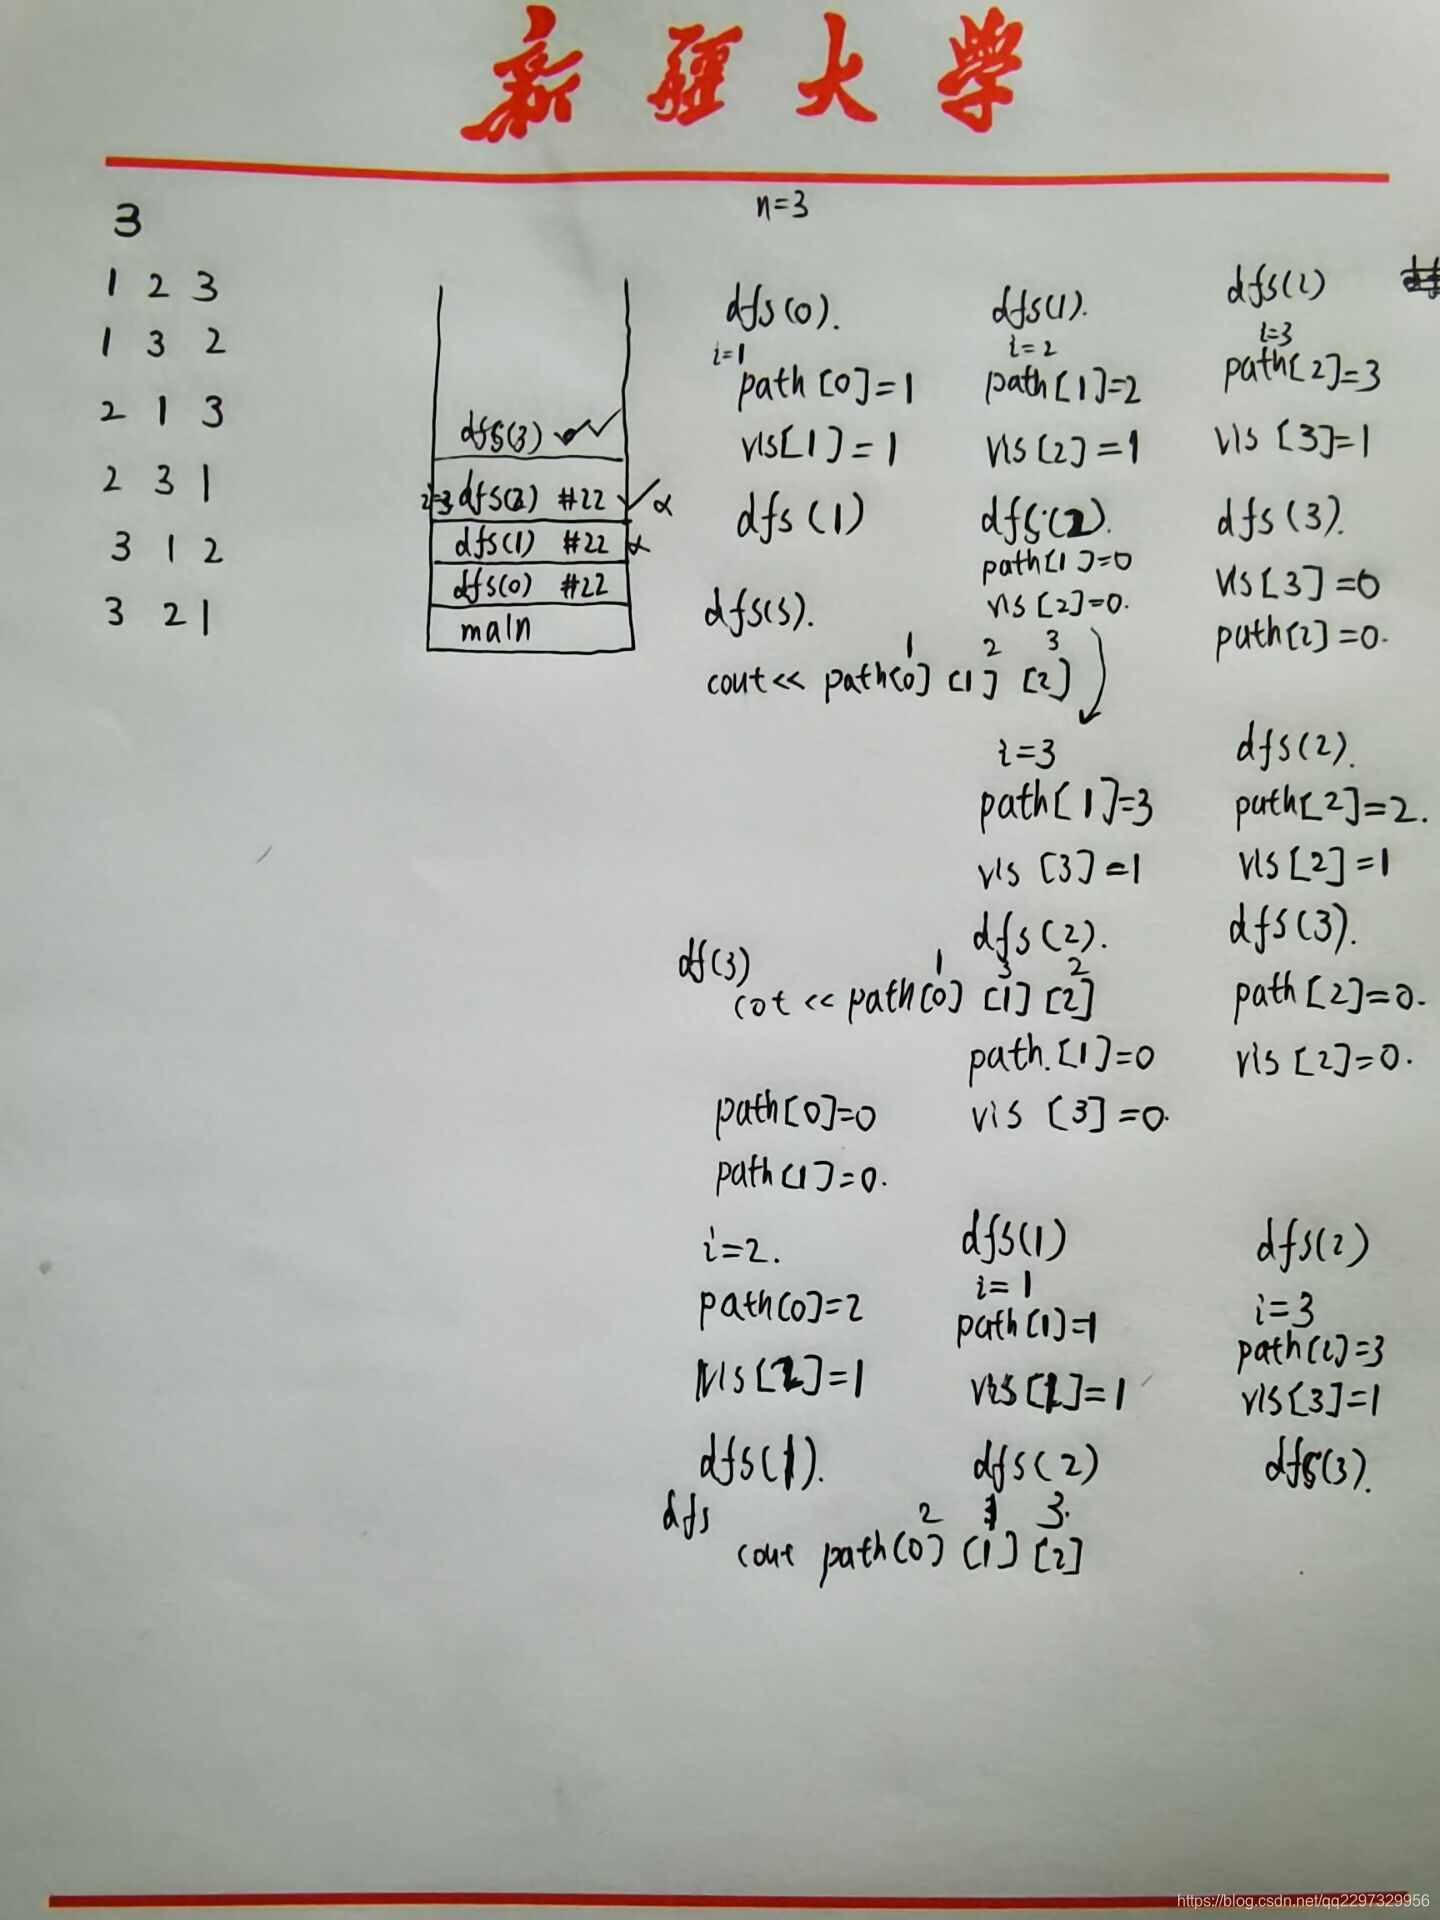 新疆大学
n=3
3
1 2 3
1 3 2
2 1 3
2 3 1
3 1 2
3 2 1
dfs(3)
i=3 dfs(2) #22
dfs(1) #22
dfs(0) #22
main
dfs(0).
i=1
path[0]=1
vis[1]=1
dfs(1)
dfs(1).
i=2
path[1]=2
vis[2]=1
dfs(2).
path[1]=0
vis[2]=0.
dfs(2)
i=3
path[2]=3
vis[3]=1
dfs(3).
vis[3]=0
path[2]=0.
dfs(3).
1 2 3
cout<< path[0] [1] [2]
i=3
path[1]=3
vis[3]=1
dfs(2).
dfs(2).
path[2]=2.
vis[2]=1
dfs(3).
path[2]=0.
vis[2]=0.
df(3)
1 3 2
cot << path[0] [1] [2]
path.[1]=0
vis[3]=0.
path[0]=0
path[1]=0.
i=2.
path[0]=2
vis[2]=1
dfs(1).
dfs(1)
i=1
path[1]=1
vis[1]=1
dfs(2)
dfs(2)
i=3
path[2]=3
vis[3]=1
dfs(3).
dfs
2 1 3.
cout path[0] [1] [2]
https://blog.csdn.net/qq2297329956